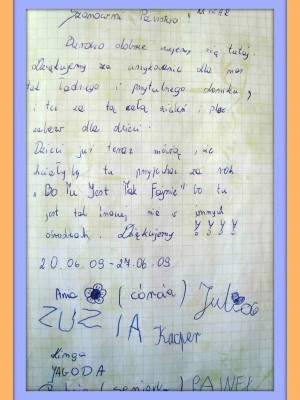 Szanowni Państwo
Bardzo dobrze czujemy się tutaj.
Dziękujemy za urządzenie dla nas
tak ładnego i przytulnego domku,
i też za tą całą zieleń i plac
zabaw dla dzieci.
Dzieci już teraz mówią, że
chciałyby tu przyjechać za rok
"Bo Tu Jest Tak Fajnie" bo tu
jest tak inaczej niż w innych
ośrodkach. Dziękujemy
20.06.09-27.06.09.
Ania (córcia) Julia
ZUZIA Kacper
Kinga
JAGODA
PAWEŁ